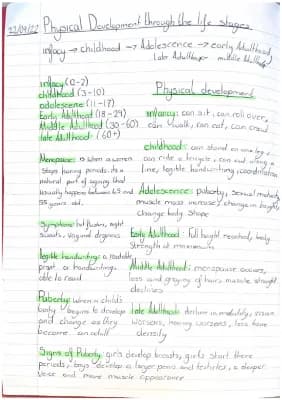 22/04/22 Physical Development through the life stages
infacy → childhood → Adolescence → early Adulthood
late Adulthood middle Adulthood
infacy (0-2)
childhood (3-10)
adolescene (11-17)
Early Adulthood (18-29)
Middle Adulthood (30-60)
late Adulthood: (60+)
Menopause: when a women
stops having periods. Its a
natural part of ageing that
usually happens between 45 and
55 years old.
Symptoms: hot flushes, night
sweats, vaginal dryness
legible handwriting: a readable
print a handwriting
able to read
Puberty: when a child's
body begins to develop
and change as they
become an adult
Physical development
infancy: can sit, can roll over,
can walk, can eat, can crawl
childhood: can stand on one leg,
can ride a bicycle, can walk along a
line, legible handwriting, coordination
Adolescence: puberty, sexual maturity
muscle mass increase, change in height,
change body shape
Early Adulthood: full height reached, body
strength at maximum
Middle Adulthood: menopause occurs,
loss and graying of hair, muscle strength
declines
late Adulthood: decline in mobility, vision
worsens, hearing worsens, loss bone
density
Signs of Puberty: girls develop breasts, girls start there
periods, boys develop a larger penis and testicles, a deeper
voice and more muscle appearance